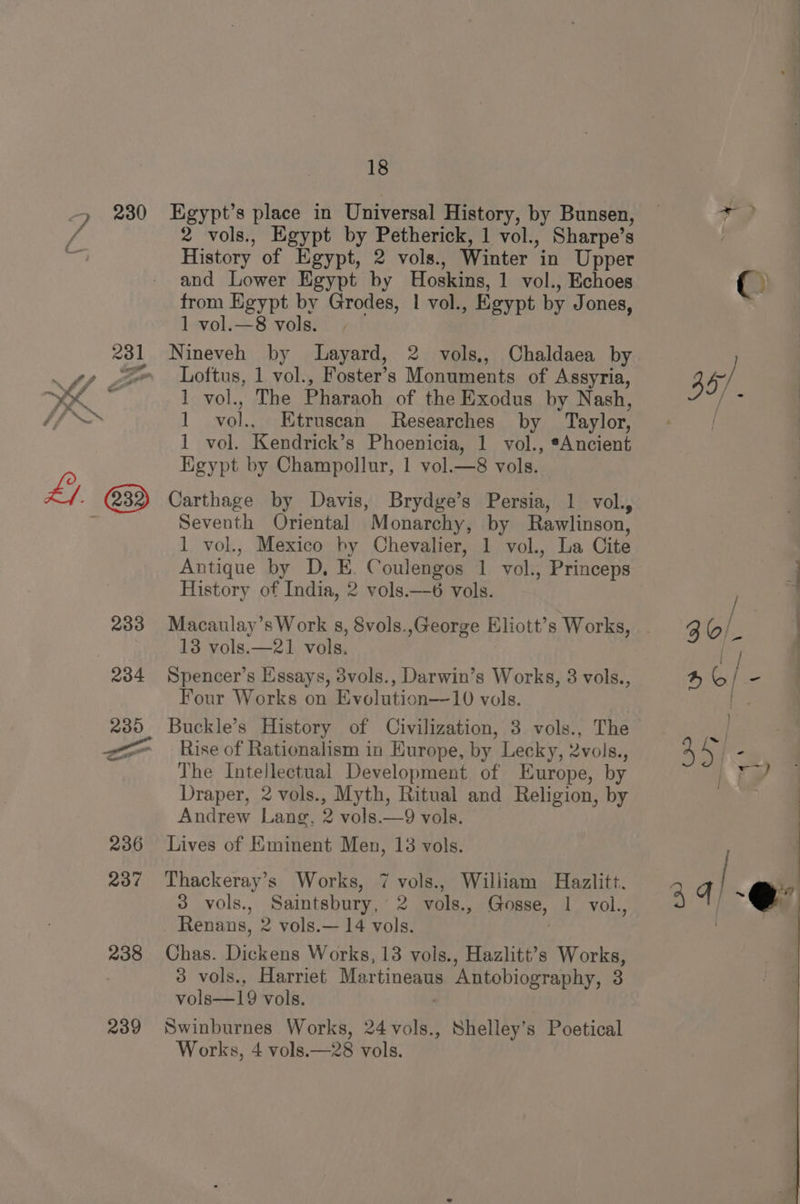 18
230 Egypt's place in Universal History, by Bunsen,
2 vols., Egypt by Petherick, 1 vol., Sharpe's
History of Egypt, 2 vols., Winter in Upper
and Lower Egypt by Hoskins, 1 vol., Echoes
from Egypt by Grodes, 1 vol., Egypt by Jones,
1 vol.—8 vols.
231 Nineveh by Layard, 2 vols., Chaldaea by
Loftus, 1 vol., Foster's Monuments of Assyria,
1 vol., The Pharaoh of the Exodus by Nash,
1 vol., Etruscan Researches by Taylor,
1 vol. Kendrick's Phoenicia, 1 vol., Ancient
Egypt by Champollur, 1 vol.—8 vols.
35/-
232 Carthage by Davis, Brydge's Persia, 1 vol.,
Seventh Oriental Monarchy, by Rawlinson,
1 vol., Mexico by Chevalier, 1 vol., La Cite
Antique by D, E. Coulengos 1 vol., Princeps
History of India, 2 vols.—6 vols.
233 Macaulay's Work s, 8vols.,George Eliott's Works,
13 vols.—21 vols.
36/-
234 Spencer's Essays, 3vols., Darwin's Works, 3 vols.,
Four Works on Evolution—10 vols.
36/-
235 Buckle's History of Civilization, 3 vols., The
Rise of Rationalism in Europe, by Lecky, 2vols.,
The Intellectual Development of Europe, by
Draper, 2 vols., Myth, Ritual and Religion, by
Andrew Lang, 2 vols.—9 vols.
35/-
236 Lives of Eminent Men, 13 vols.
237 Thackeray's Works, 7 vols., William Hazlitt.
3 vols., Saintsbury, 2 vols., Gosse, 1 vol.,
Renans, 2 vols.—14 vols.
238 Chas. Dickens Works, 13 vols., Hazlitt's Works,
3 vols., Harriet Martineaus Antobiography, 3
vols—19 vols.
239 Swinburnes Works, 24 vols., Shelley's Poetical
Works, 4 vols.—28 vols.